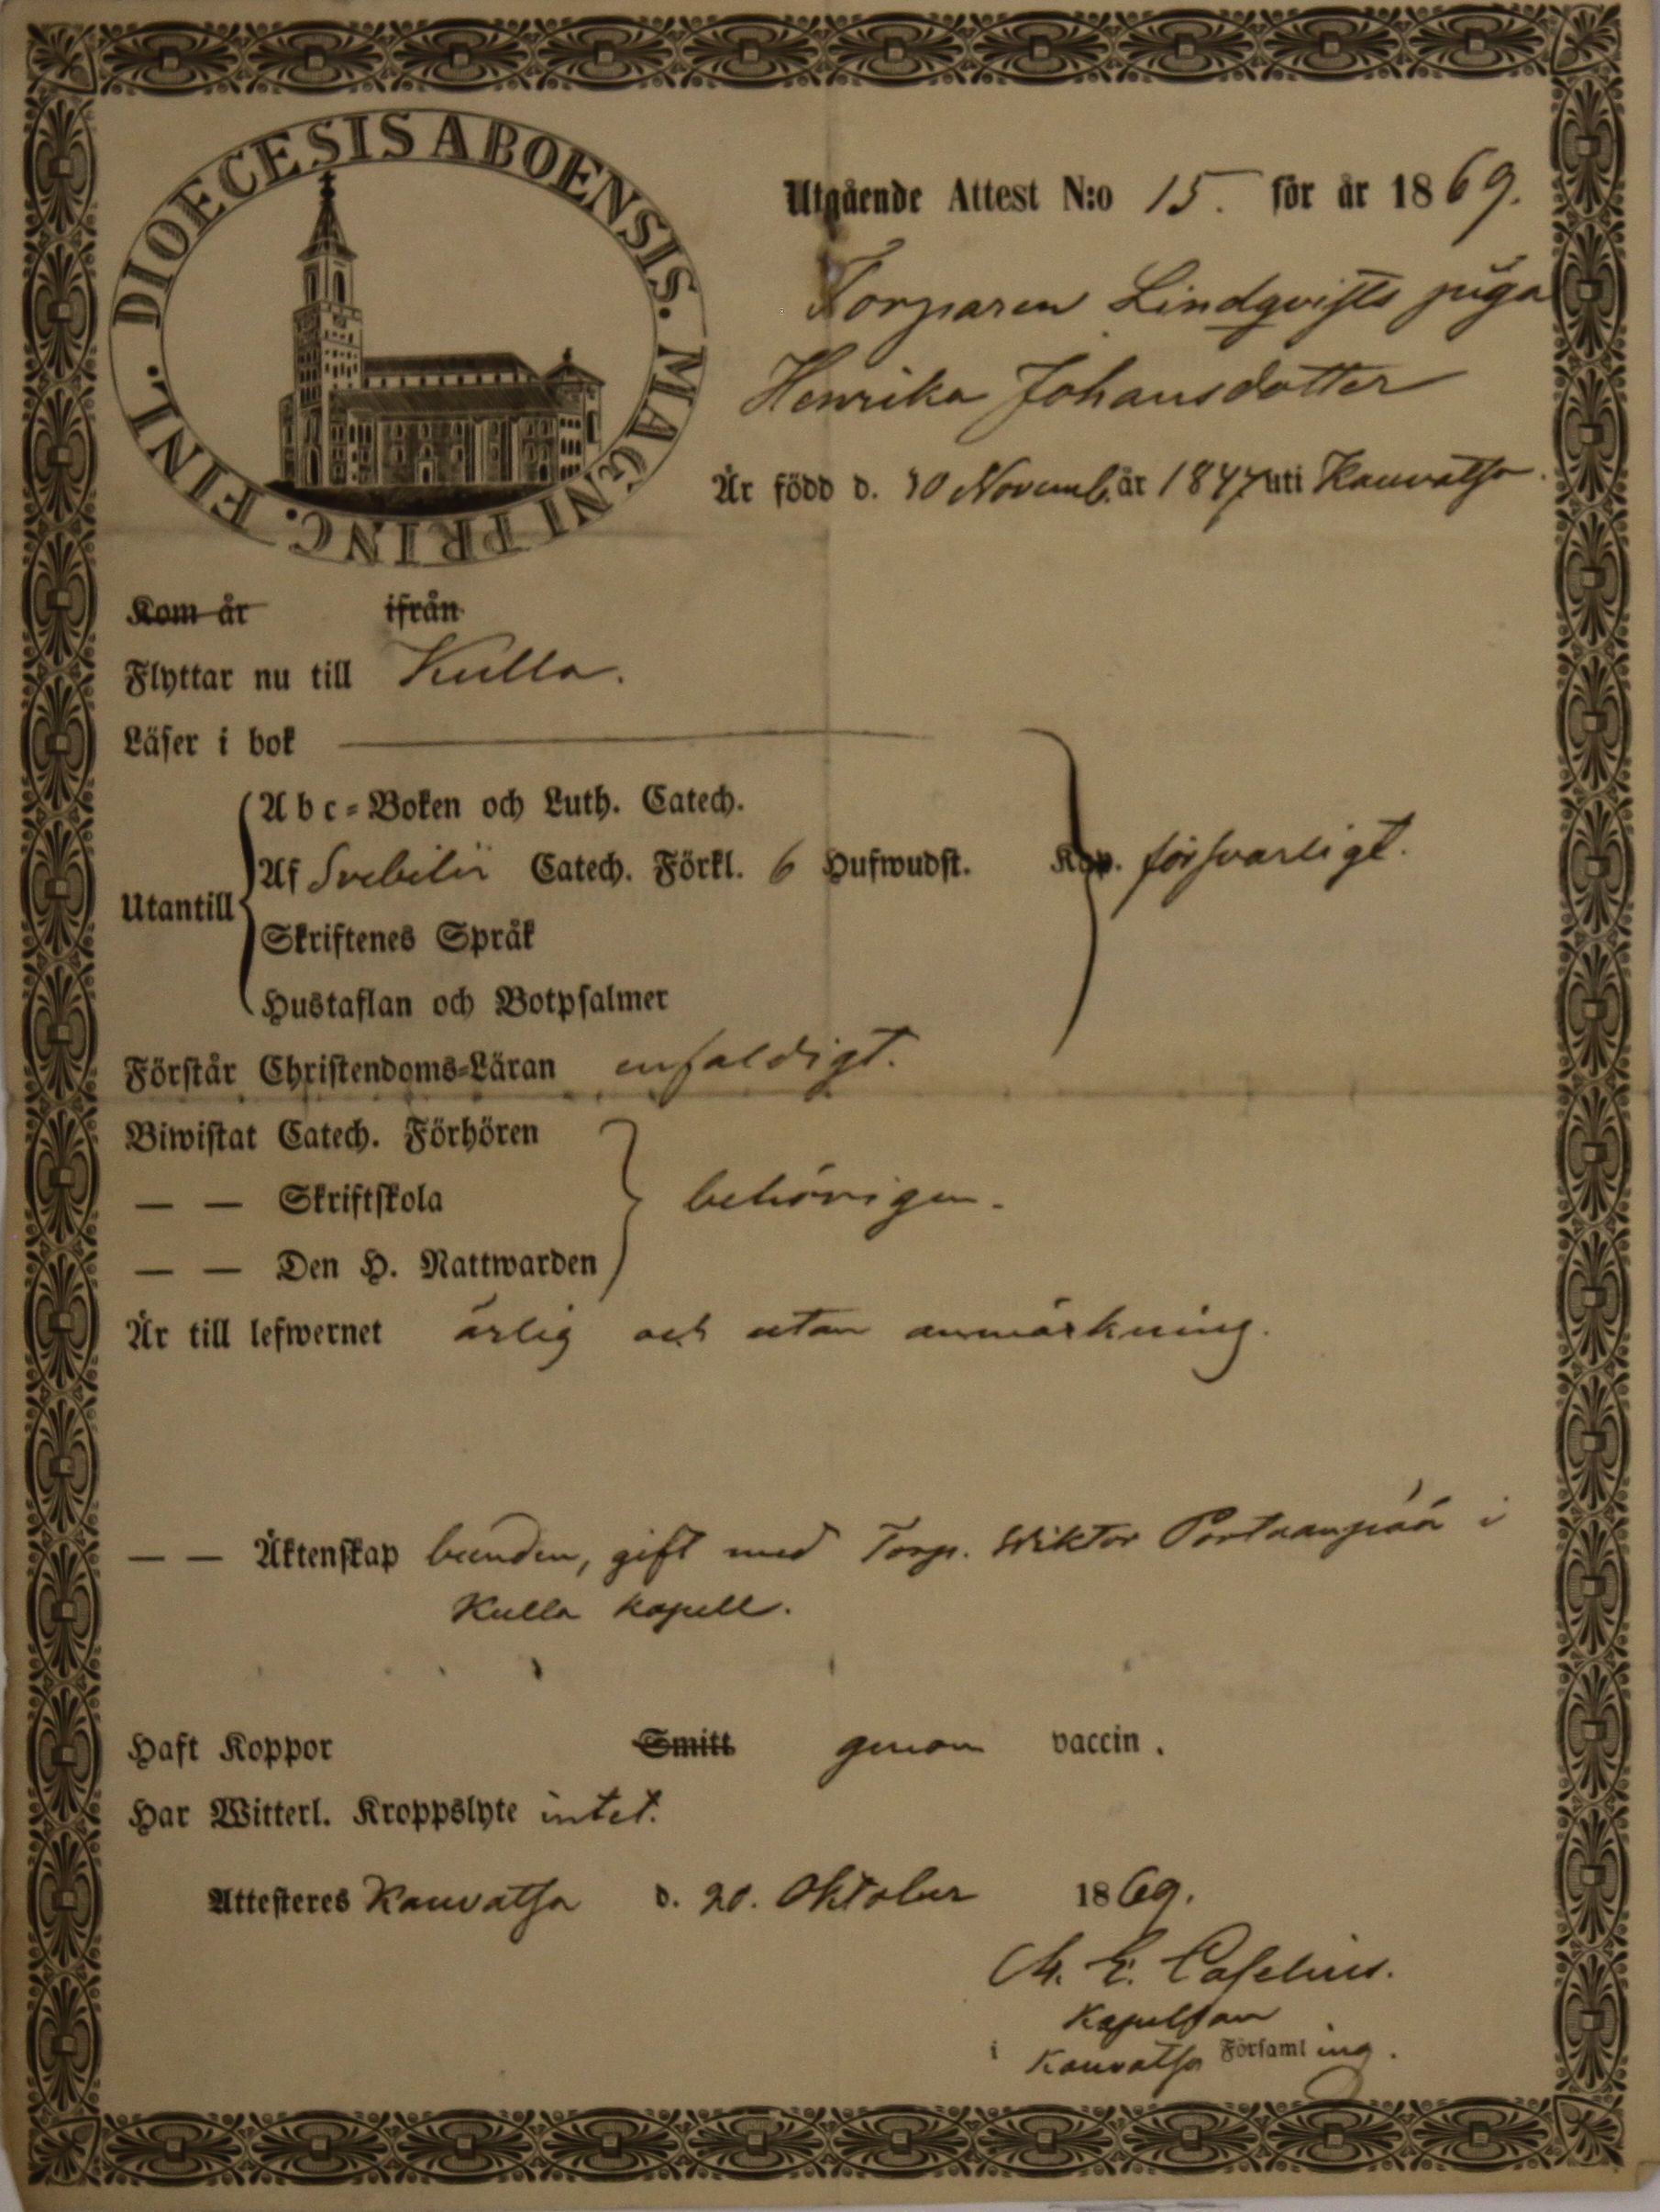 DIOECESIS ABOENSIS. MAGNI PRINC. FINL.
Utgående Attest N:o 15. för år 1869.
Torparen Lindqvists piga
Henrika Johansdotter
Är född d. 10 Novemb. år 1847 uti Kauvatsa.
Kom år ifrån
Flyttar nu till Kulla.
Läser i bok
Utantill
Abc-Boken och Luth. Catech.
Af Svebilii Catech. Förkl. 6 Hufwudst. Kap. försvarligt.
Skriftenes Språk
Hustaflan och Botpsalmer
Förstår Christendoms-Läran enfaldigt.
Biwistat Catech. Förhören
— — Skriftskola behörigen.
— — Den H. Nattwarden
Är till lefwernet ärlig och utan anmärkning.
— — Äktenskap bunden, gift med Torp. Wiktor Portaanpää i
Kulla kapell.
Haft Koppor Smitt genom vaccin.
Har Witterl. Kroppslyte intet.
Attesteres Kauvatsa d. 20. Oktober 1869.
E. Caselius.
Kapellan
i Kauvatsa Församling.